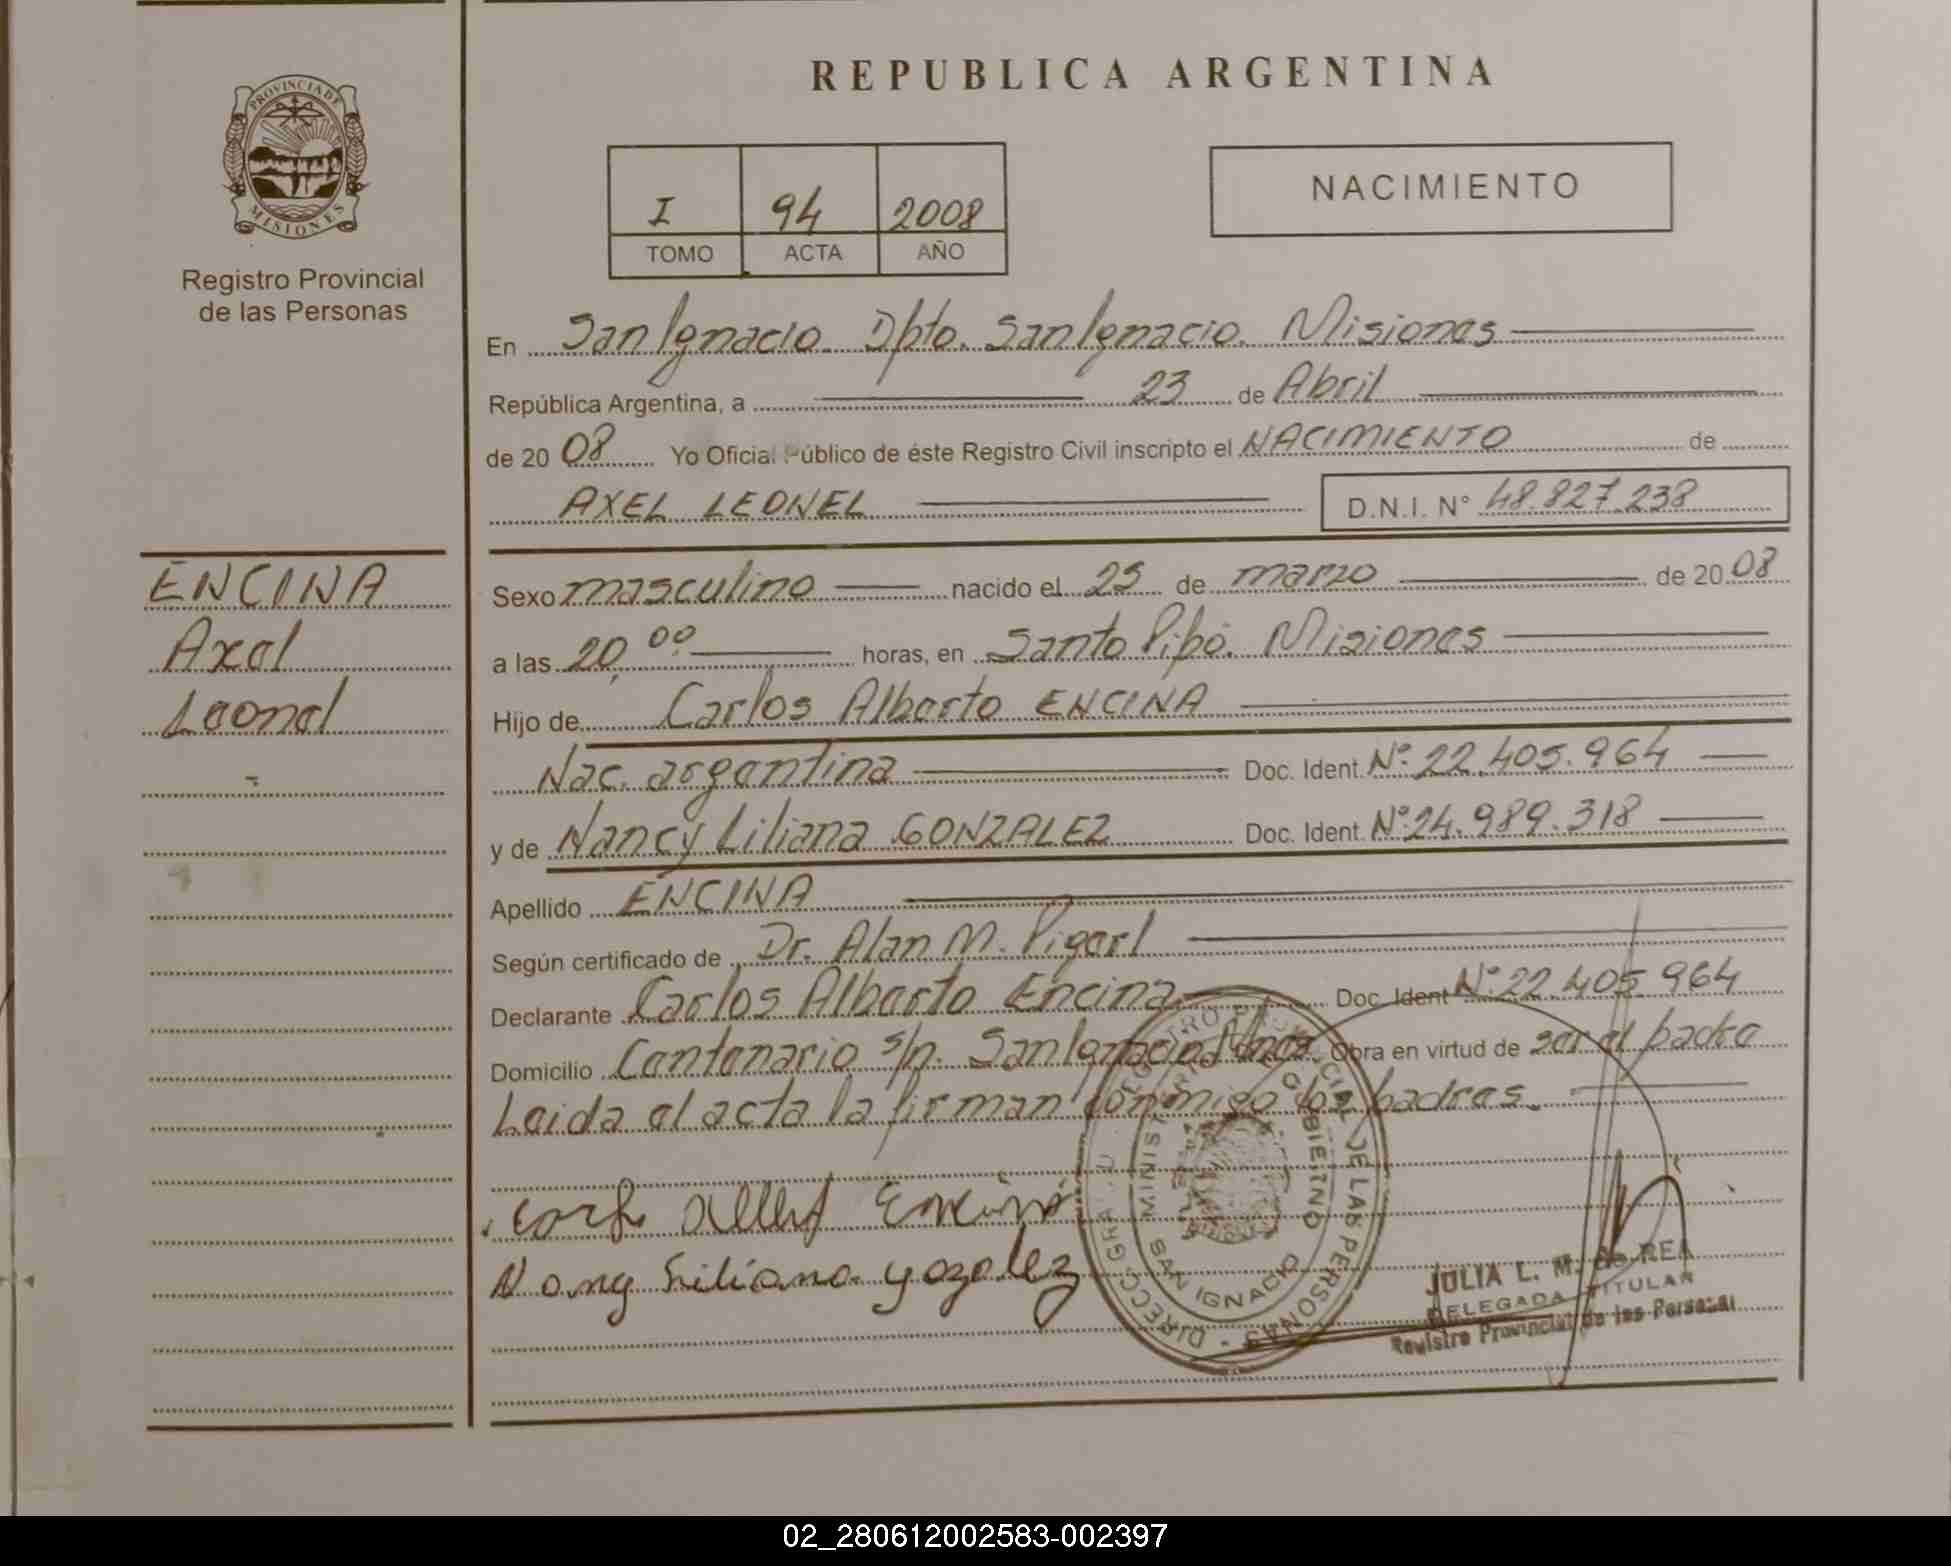 REPUBLICA ARGENTINA
PROVINCIA DE
MISIONES
Registro Provincial
de las Personas
I 94 2008
TOMO ACTA AÑO
NACIMIENTO
En San Ignacio Dpto. San Ignacio. Misiones
República Argentina, a 23 de Abril
de 2008 Yo Oficial Público de éste Registro Civil inscripto el NACIMIENTO de
AXEL LEONEL D.N.I. N° 48.827.238
ENCINA
Axel
Leonel
Sexo masculino nacido el 25 de marzo de 2008
a las 20,00 horas, en Santo Pipó. Misiones
Hijo de Carlos Alberto ENCINA
Nac. argentina Doc. Ident. N°: 22.405.964
y de Nancy Liliana GONZALEZ Doc. Ident. N°: 24.989.318
Apellido ENCINA
Según certificado de Dr. Alan M.
Declarante Carlos Alberto Encina Doc. Ident N°: 22.405.964
Domicilio Centenario s/n. San Ignacio Obra en virtud de ser el padre
Leida el acta la firman conmigo los padres.
Encina
Liliana
MINISTERIO GOBIERNO
DE LAS PERSONAS
SAN IGNACIO
JULIA L. M. de REA
DELEGADA TITULAR
Registro Provincial de las Personas
02_280612002583-002397